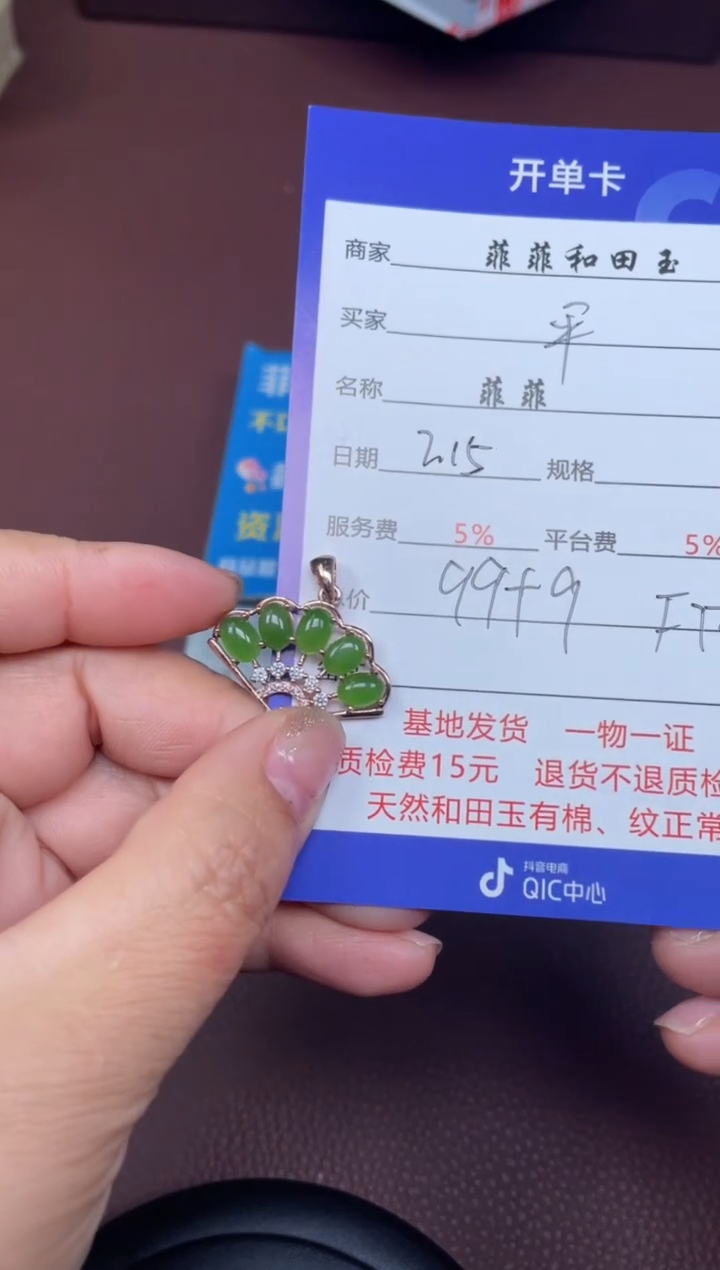 开单卡
商家 菲菲和田玉
买家 平
名称 菲菲
日期 2.15 规格
服务费 5% 平台费 5%
价 99+9
基地发货 一物一证
质检费15元 退货不退质检
天然和田玉有棉、纹正常
抖音电商
QIC中心
菲
资